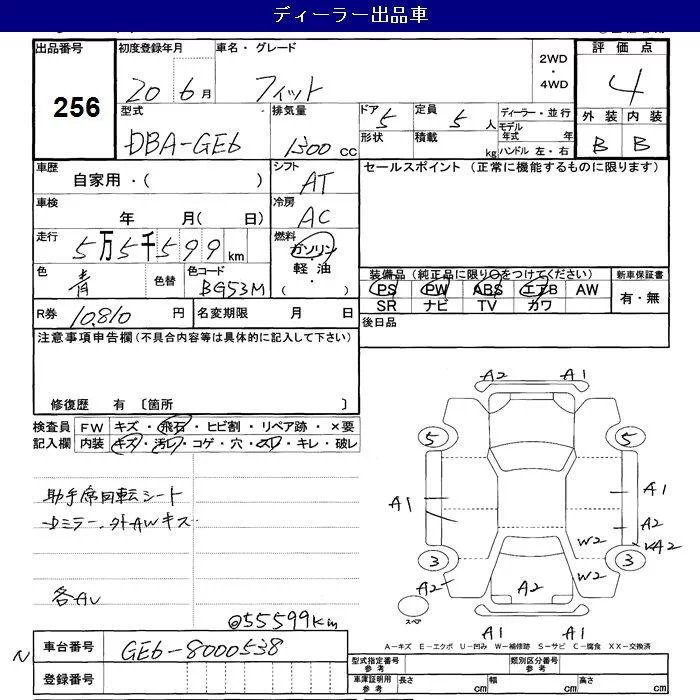 ディーラー出品車
出品番号
256
初度登録年月
20 6月
車名・グレード
フィット
2WD
・
4WD
評価点
4
外装 内装
B B
型式
DBA-GE6
排気量
1300 cc
ドア
5
定員
5 人
形状
積載
kg
ディーラー・並行
モデル年式 年
ハンドル 左・右
車歴
自家用・( )
シフト
AT
セールスポイント (正常に機能するものに限ります)
車検
年 月( 日)
冷房
AC
走行
5万5千599km
燃料
ガソリン
軽油
( ・ )
色
青
色替
色コード
BG53M
装備品 (純正品に限り○をつけてください)
PS PW ABS エアB AW
SR ナビ TV カワ
新車保証書
有・無
R券 10,810 円
名変期限 月 日
後日品
注意事項申告欄 (不具合内容等は具体的に記入して下さい)
修復歴 有 〔箇所 〕
検査員
記入欄
FW キズ・飛石・ヒビ割・リペア跡・×要
内装 キズ・汚レ・コゲ・穴・スレ・キレ・破レ
助手席回転シート
外AWキズ
各AU
@55599km
A2 A1
5 5
A1
A1
A2
W2
A2
3 3
A2
W2
A2
スペア
A1 A1
A－キズ E－エクボ U－凹み W－補修跡 S－サビ C－腐食 XX－交換済
N
車台番号 GE6-8000538
登録番号
型式指定番号
参考
類別区分番号
参考
車庫証明用
参考
長さ cm 幅 cm 高さ cm